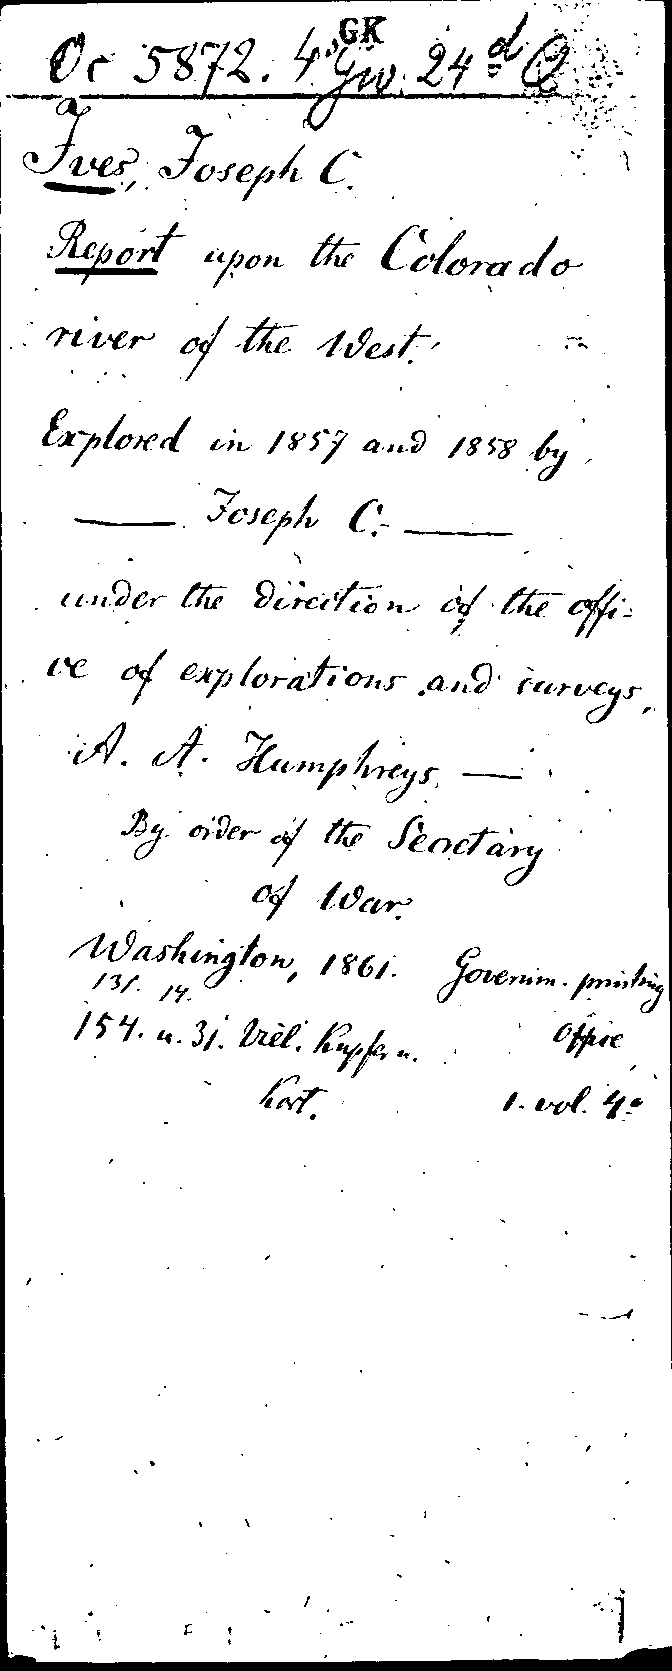 GK
Oc 5872. 4° Gw. 24d
Ives, Joseph C.
Report upon the Colorado
river of the West.
Explored in 1857 and 1858 by
—— Joseph C. ——
under the direction of the offi-
ce of explorations and surveys,
A. A. Humphreys, —
By order of the Secretary
of War.
Washington, 1861. Governm. printing
Office
131. 14.
154. u. 31. Viel. Kupfer u.
Kart. 1. vol. 4°